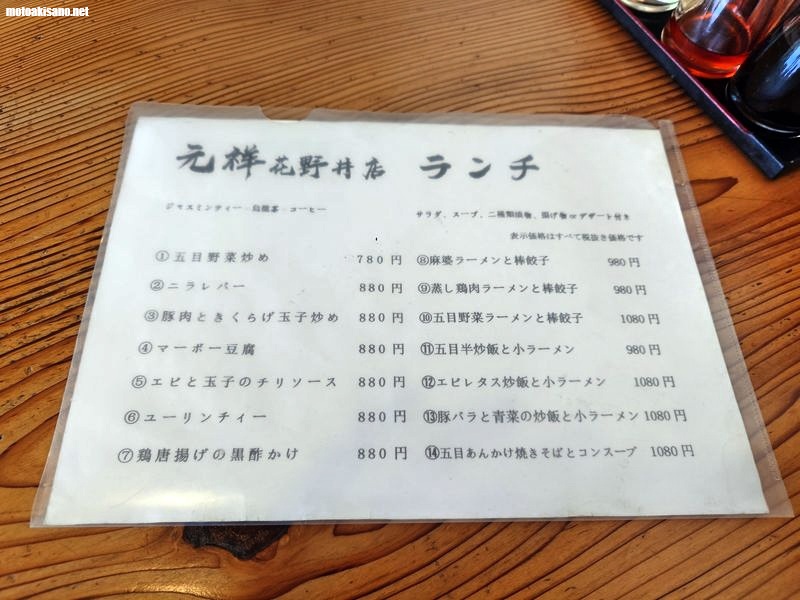 motoakisano.net
元祥花野井店 ランチ
ジャスミンティー 烏龍茶 コーヒー
サラダ、スープ、二種類漬物、揚げ物orデザート付き
表示価格はすべて税抜き価格です
①五目野菜炒め 780円
②ニラレバー 880円
③豚肉ときくらげ玉子炒め 880円
④マーボー豆腐 880円
⑤エビと玉子のチリソース 880円
⑥ユーリンチィー 880円
⑦鶏唐揚げの黒酢かけ 880円
⑧麻婆ラーメンと棒餃子 980円
⑨蒸し鶏肉ラーメンと棒餃子 980円
⑩五目野菜ラーメンと棒餃子 1080円
⑪五目半炒飯と小ラーメン 980円
⑫エビレタス炒飯と小ラーメン 1080円
⑬豚バラと青菜の炒飯と小ラーメン 1080円
⑭五目あんかけ焼きそばとコンスープ 1080円